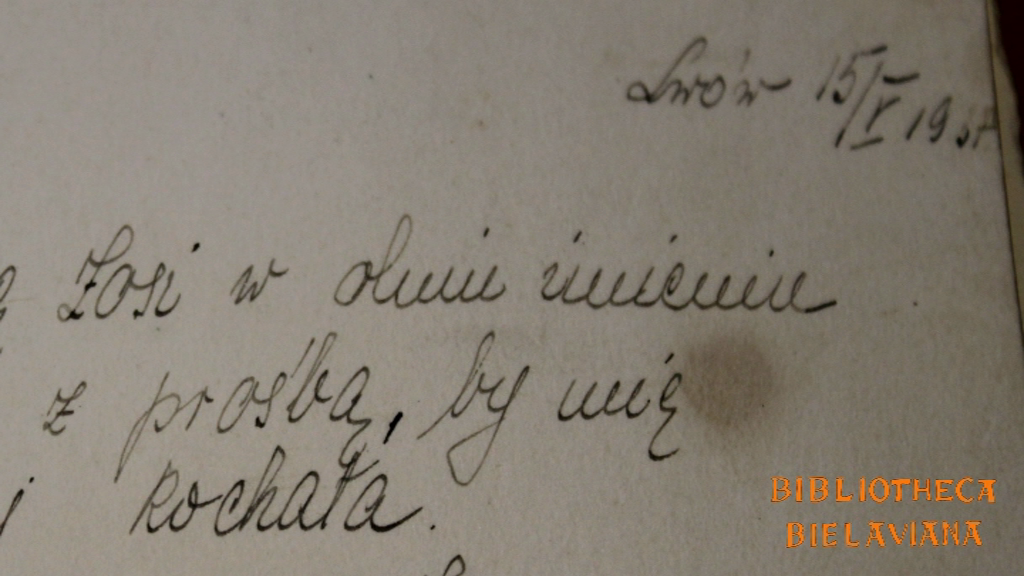 Lwów 15/V 1937
Zosi w dniu imienin
z prośbą, by mię
kochała.
BIBLIOTHECA
BIELAVIANA